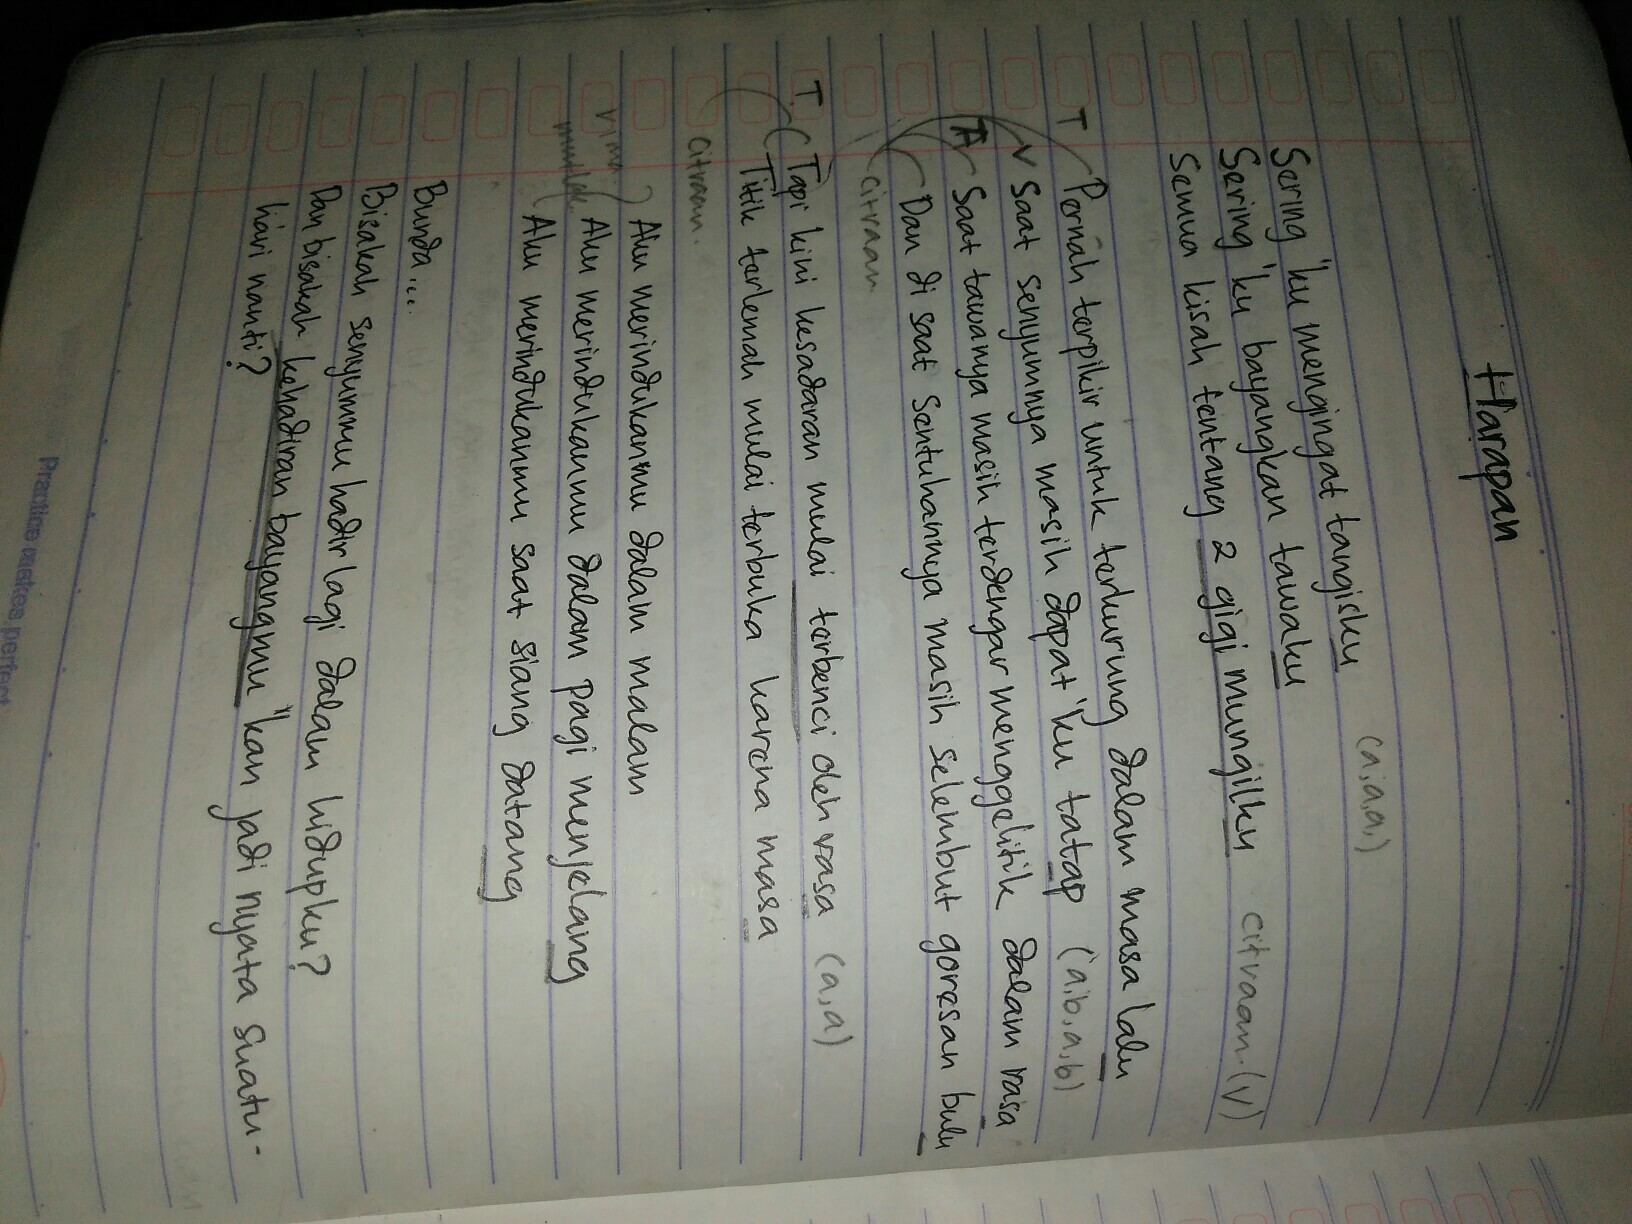 Harapan
Sering 'ku mengingat tangisku (a,a,a,)
Sering 'ku bayangkan tawaku
Semua kisah tentang 2 gigi mungilku citraan (v)
T Pernah terpikir untuk terkurung dalam masa lalu
V Saat senyumnya masih dapat 'ku tatap (a,b,a,b)
A Saat tawanya masih terdengar menggelitik dalam rasa
Dan di saat sentuhannya masih selembut goresan bulu
citraan.
T Tapi kini kesadaran mulai terbenci oleh rasa (a,a)
Titik terlemah mulai terbuka karena masa
citraan.
Aku merindukanmu dalam malam
rima Aku merindukanmu dalam pagi menjelang
mutlak. Aku merindukanmu saat siang datang
Bunda...
Bisakah senyummu hadir lagi dalam hidupku?
Dan bisakah kehadiran bayangmu 'kan jadi nyata suatu-
hari nanti?
Practice makes perfect